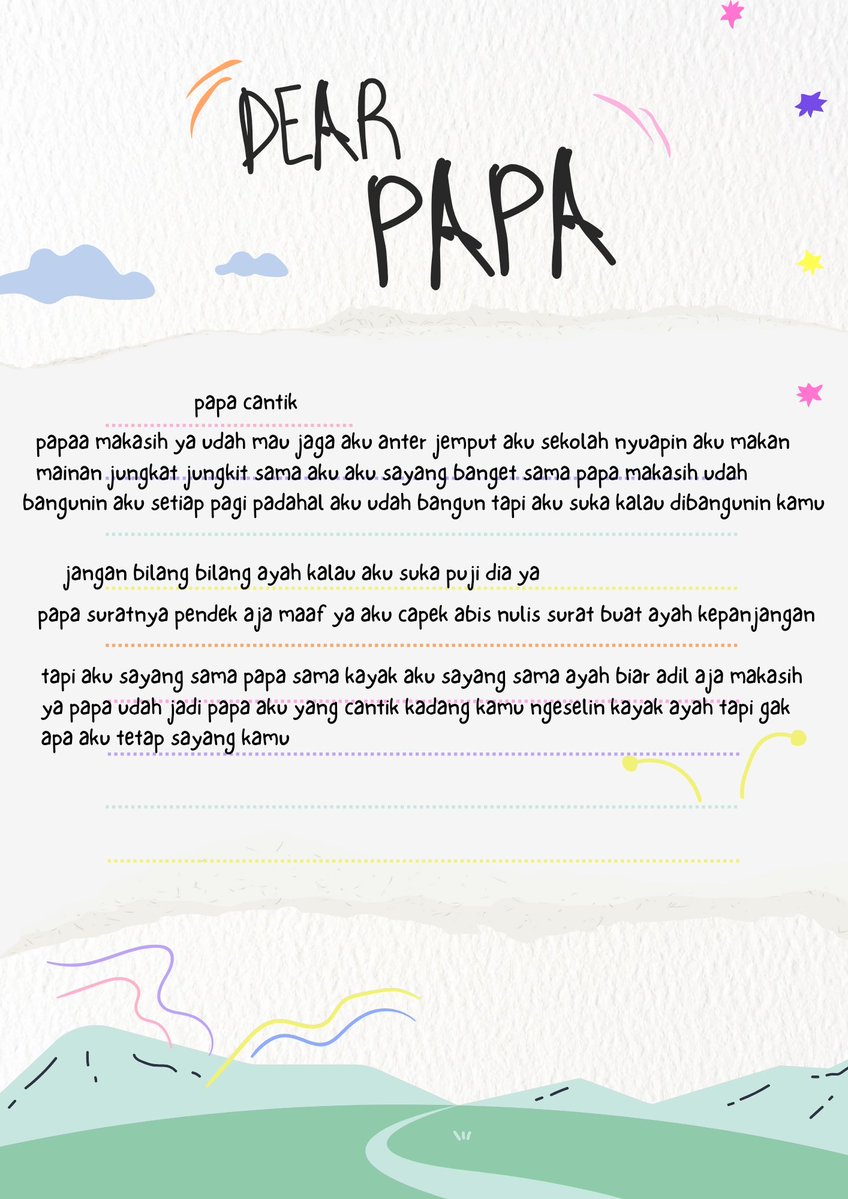 DEAR
PAPA
papa cantik
papaa makasih ya udah mau jaga aku anter jemput aku sekolah nyuapin aku makan
mainan jungkat jungkit sama aku aku sayang banget sama papa makasih udah
bangunin aku setiap pagi padahal aku udah bangun tapi aku suka kalau dibangunin kamu
jangan bilang bilang ayah kalau aku suka puji dia ya
papa suratnya pendek aja maaf ya aku capek abis nulis surat buat ayah kepanjangan
tapi aku sayang sama papa sama kayak aku sayang sama ayah biar adil aja makasih
ya papa udah jadi papa aku yang cantik kadang kamu ngeselin kayak ayah tapi gak
apa aku tetap sayang kamu